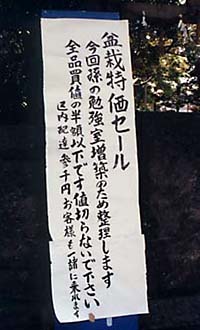 盆栽特価セール
今回孫の勉強室増築のため整理します
全品買値の半額以下です値切らないで下さい
区内配達 参千円お客様も一諸に乗れます